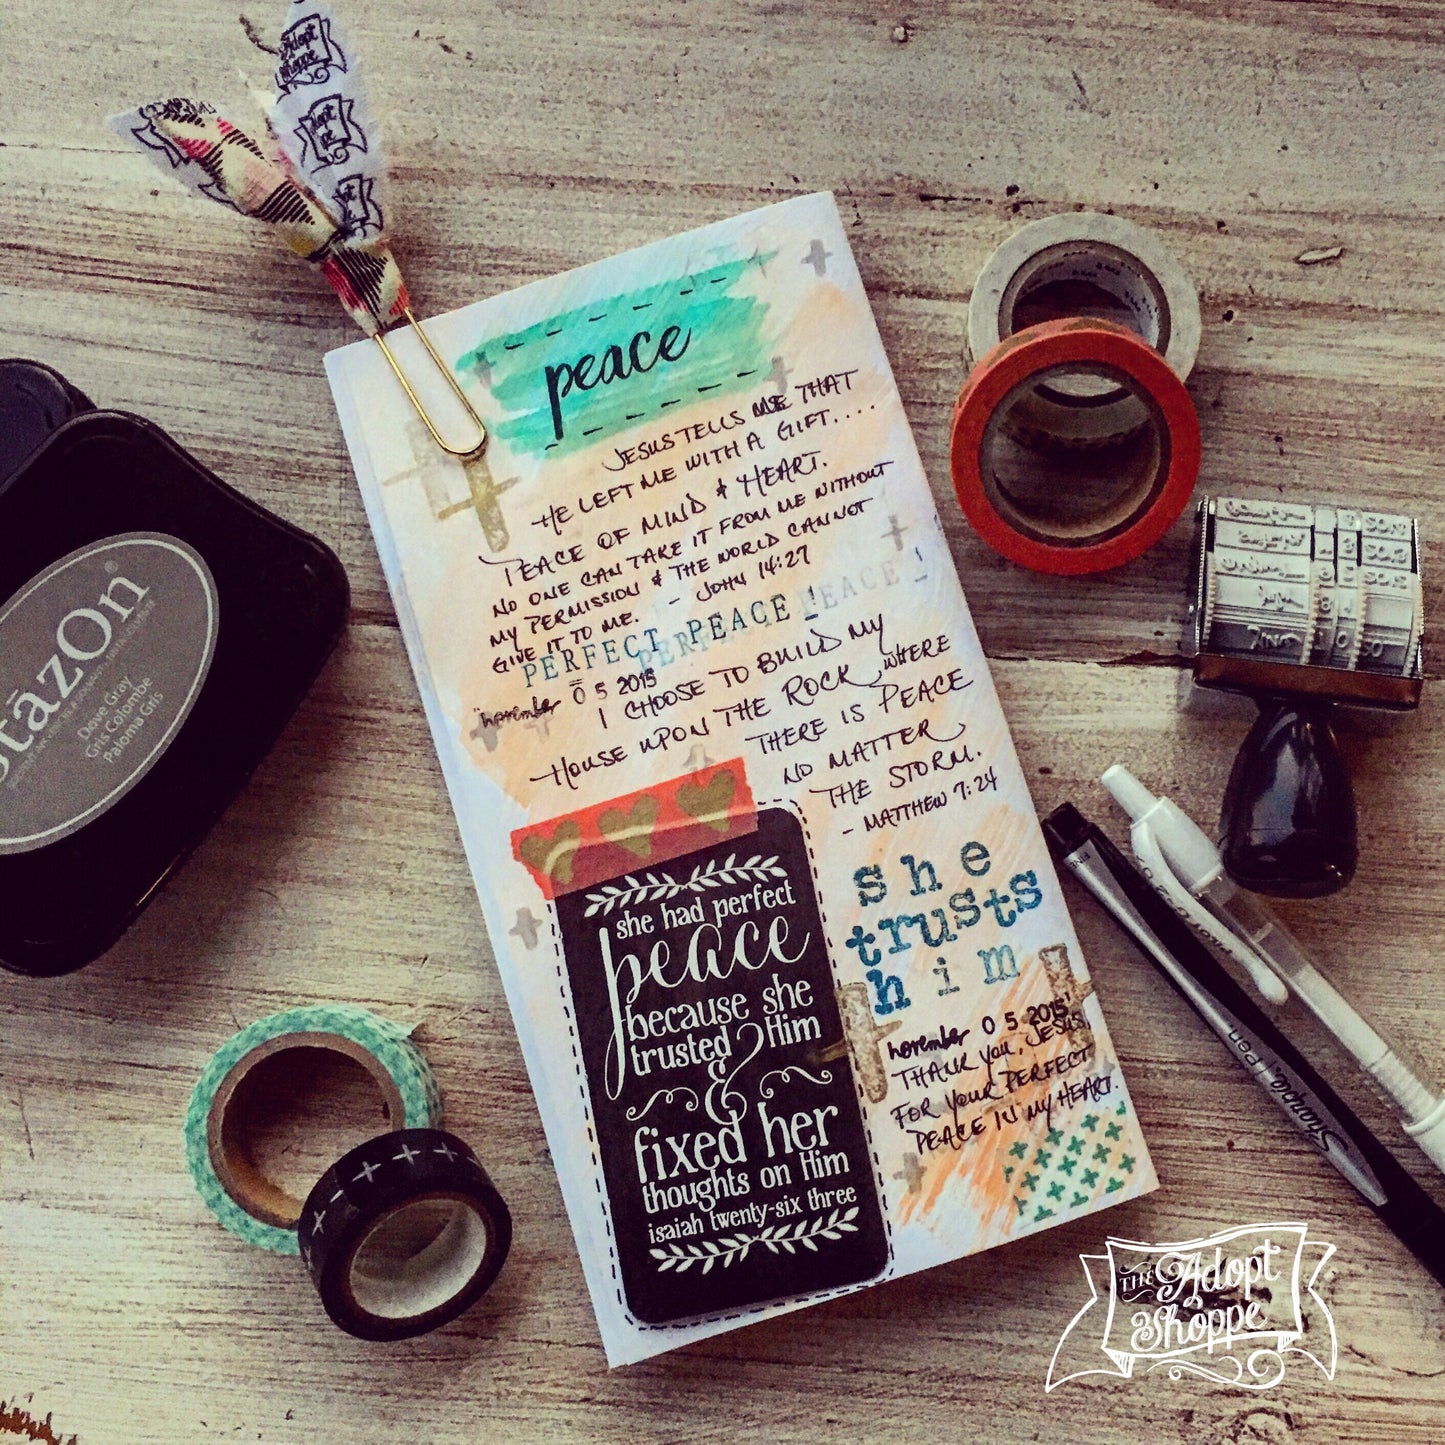 Adopt
Shoppe
peace
JESUS TELLS ME THAT
HE LEFT ME WITH A GIFT....
PEACE OF MIND & HEART.
NO ONE CAN TAKE IT FROM ME WITHOUT
MY PERMISSION & THE WORLD CANNOT
GIVE IT TO ME. - JOHN 14:27
PERFECT PEACE!
PERFECT PEACE!
november 05 2015
I CHOOSE TO BUILD MY
HOUSE UPON THE ROCK WHERE
THERE IS PEACE
NO MATTER
THE STORM.
- MATTHEW 7:24
she had perfect
peace
because she
trusted Him
&
fixed her
thoughts on Him
isaiah twenty-six three
she
trusts
him
november 05 2015
THANK YOU, JESUS,
FOR YOUR PERFECT
PEACE IN MY HEART.
StāzOn®
Dove Gray
Gris Colombe
Paloma Gris
PILOT
Sharpie. pen
THE Adopt
Shoppe